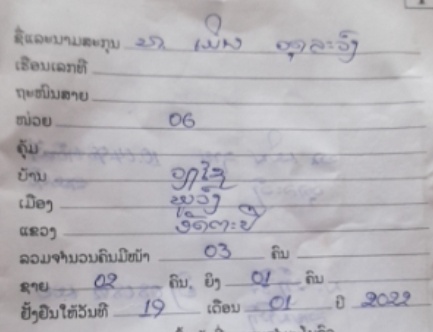 ຊື່ແລະນາມສະກຸນ ທ້າວ ເພັງ ອຸດລະວົງ
ເຮືອນເລກທີ
ຖະໜົນສາຍ
ໜ່ວຍ 06
ຄຸ້ມ
ບ້ານ
ເມືອງ ພູວົງ
ແຂວງ ອັດຕະປື
ລວມຈຳນວນຄົນມີໜ້າ 03 ຄົນ
ຊາຍ 02 ຄົນ, ຍິງ 01 ຄົນ
ຢັ້ງຢືນໃຫ້ວັນທີ 19 ເດືອນ 01 ປີ 2022